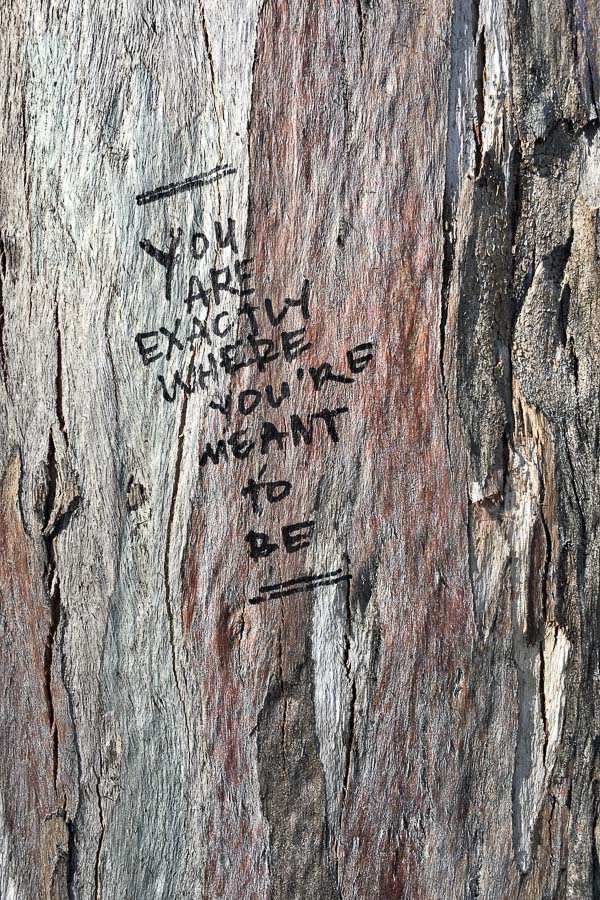 YOU
ARE
EXACTLY
WHERE
YOU'RE
MEANT
TO
BE